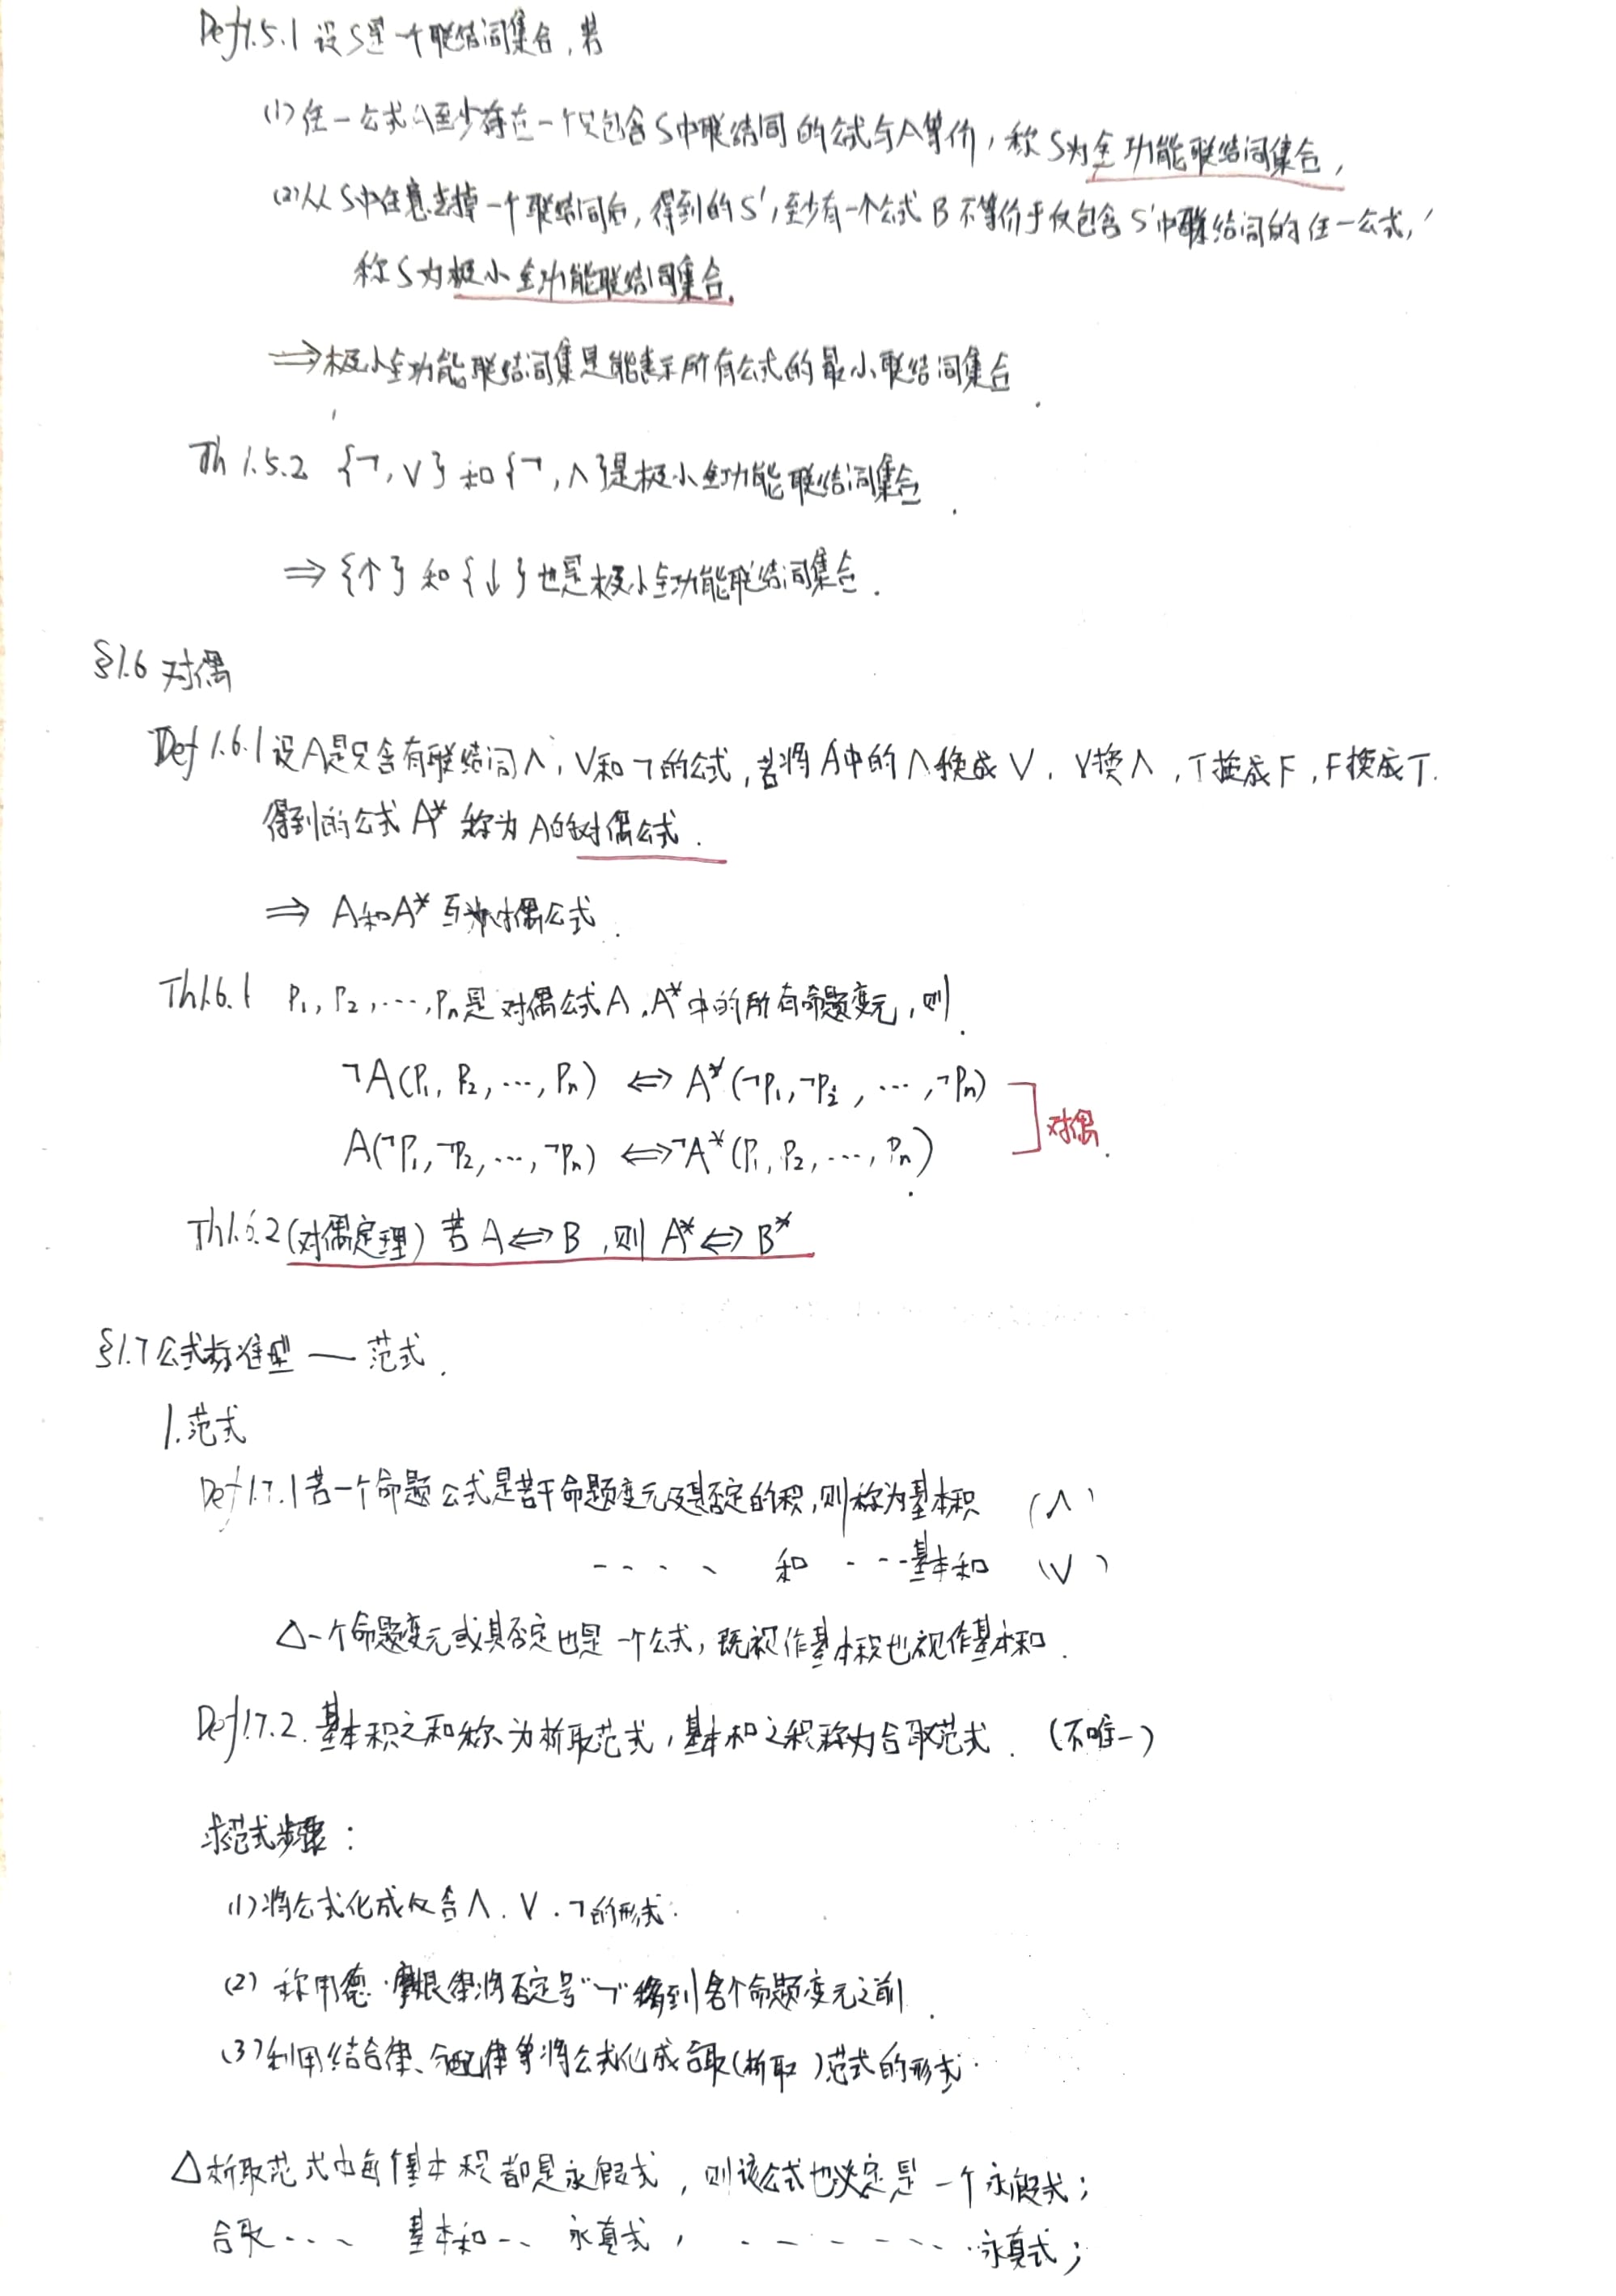 Def1.5.1 设S是一个联结词集合,若
(1)任一公式A至少存在一个仅包含S中联结词的公式与A等价,称S为全功能联结词集合,
(2)从S中任意去掉一个联结词后,得到的S',至少有一个公式B不等价于仅包含S'中联结词的任一公式,
称S为极小全功能联结词集合.
⇒极小全功能联结词集是能表示所有公式的最小联结词集合.
Th 1.5.2 {¬,∨}和{¬,∧}是极小全功能联结词集合.
⇒{↑}和{↓}也是极小全功能联结词集合.
§1.6 对偶
Def 1.6.1 设A是只含有联结词∧,∨和¬的公式,若将A中的∧换成∨,∨换∧,T换成F,F换成T.
得到的公式A*称为A的对偶公式.
⇒ A和A*互为对偶公式.
Th1.6.1 P₁,P₂,…,Pₙ是对偶公式A,A*中的所有命题变元,则.
¬A(P₁,P₂,…,Pₙ) ⇔ A*(¬P₁,¬P₂,…,¬Pₙ)
对偶.
A(¬P₁,¬P₂,…,¬Pₙ) ⇔ ¬A*(P₁,P₂,…,Pₙ).
Th1.6.2(对偶定理) 若A⇔B,则A*⇔B*
§1.7公式标准型—范式.
1.范式
Def1.7.1若一个命题公式是若干命题变元及其否定的积,则称为基本积 (∧)
---- 和 ---基本和 (∨)
△一个命题变元或其否定也是一个公式,既视作基本积也视作基本和.
Def1.7.2.基本积之和称为析取范式,基本和之积称为合取范式.(不唯一)
求范式步骤:
(1)将公式化成仅含∧.∨.¬的形式.
(2)称用德·摩根律将否定号"¬"移到各个命题变元之前.
(3)利用结合律、分配律等将公式化成合取(析取)范式的形式.
△析取范式中每个基本积都是永假式,则该公式也必定是一个永假式;
合取--- 基本和-- 永真式, ------- 永真式;